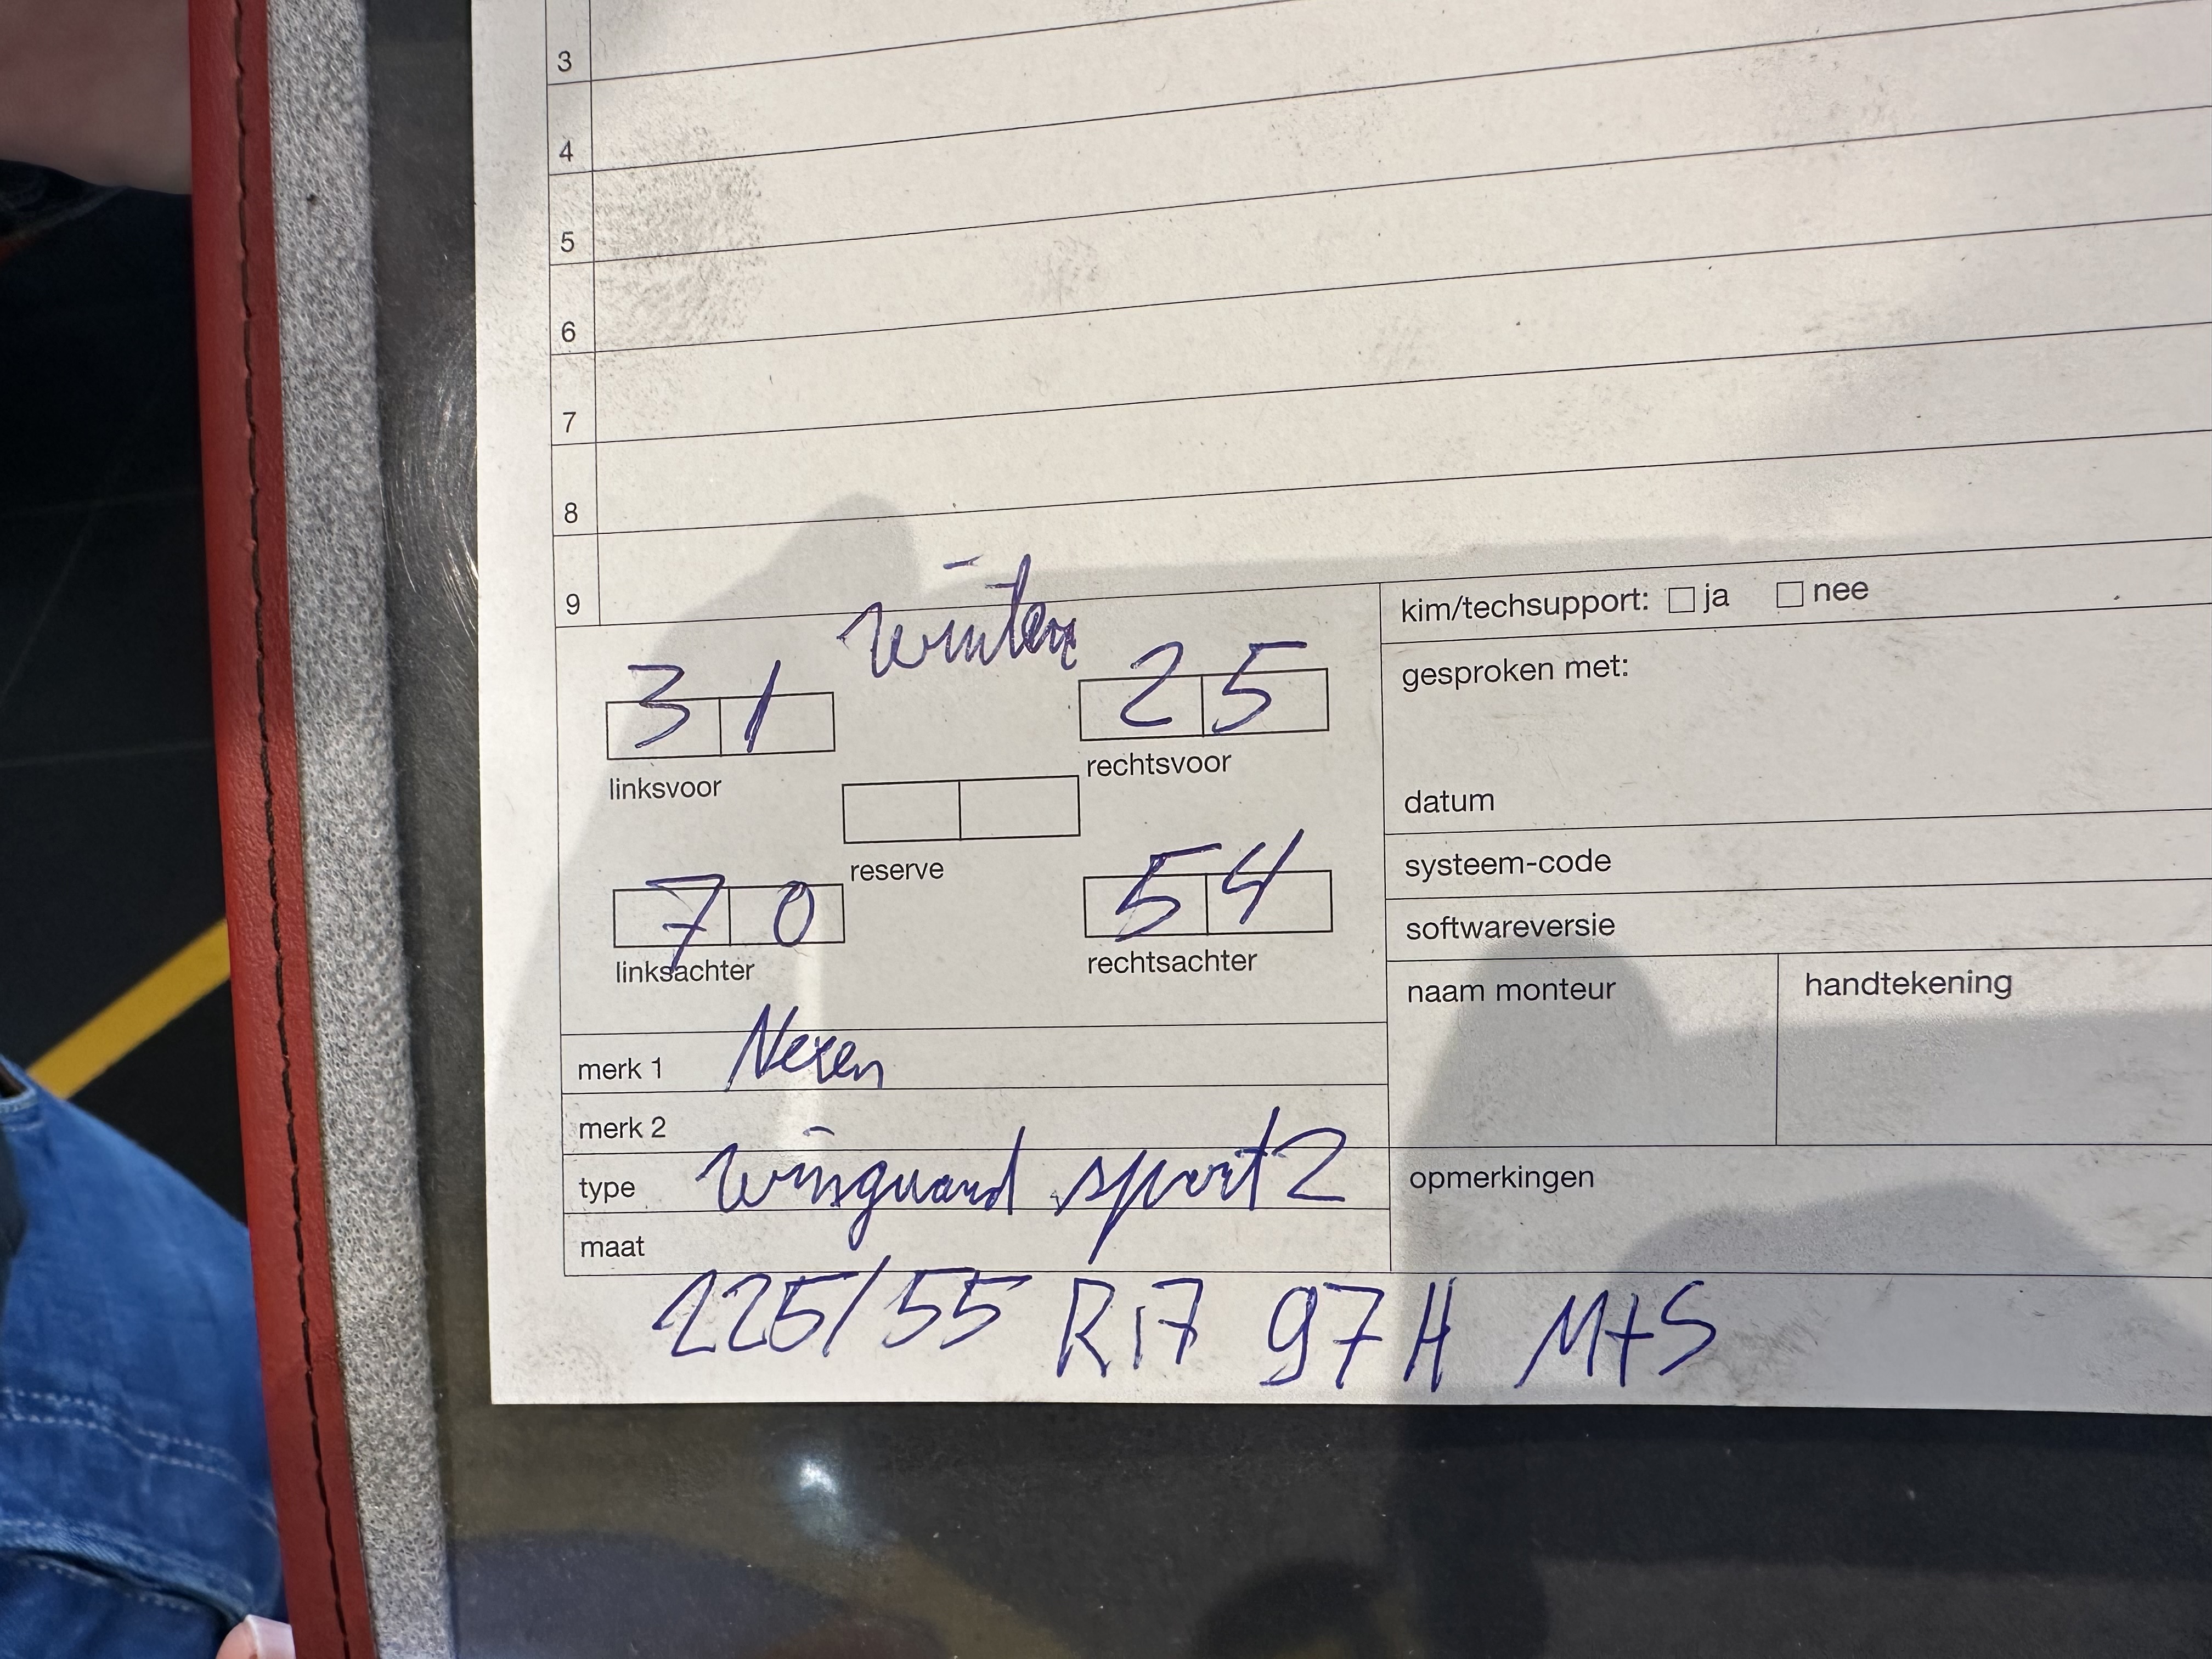 3
4
5
6
7
8
9
winter
3 1
2 5
linksvoor
rechtsvoor
reserve
7 0
5 4
linksachter
rechtsachter
merk 1 Nexen
merk 2
type winguard sport 2
maat
225/55 R17 97H M+S
kim/techsupport: ja nee
gesproken met:
datum
systeem-code
softwareversie
naam monteur handtekening
opmerkingen